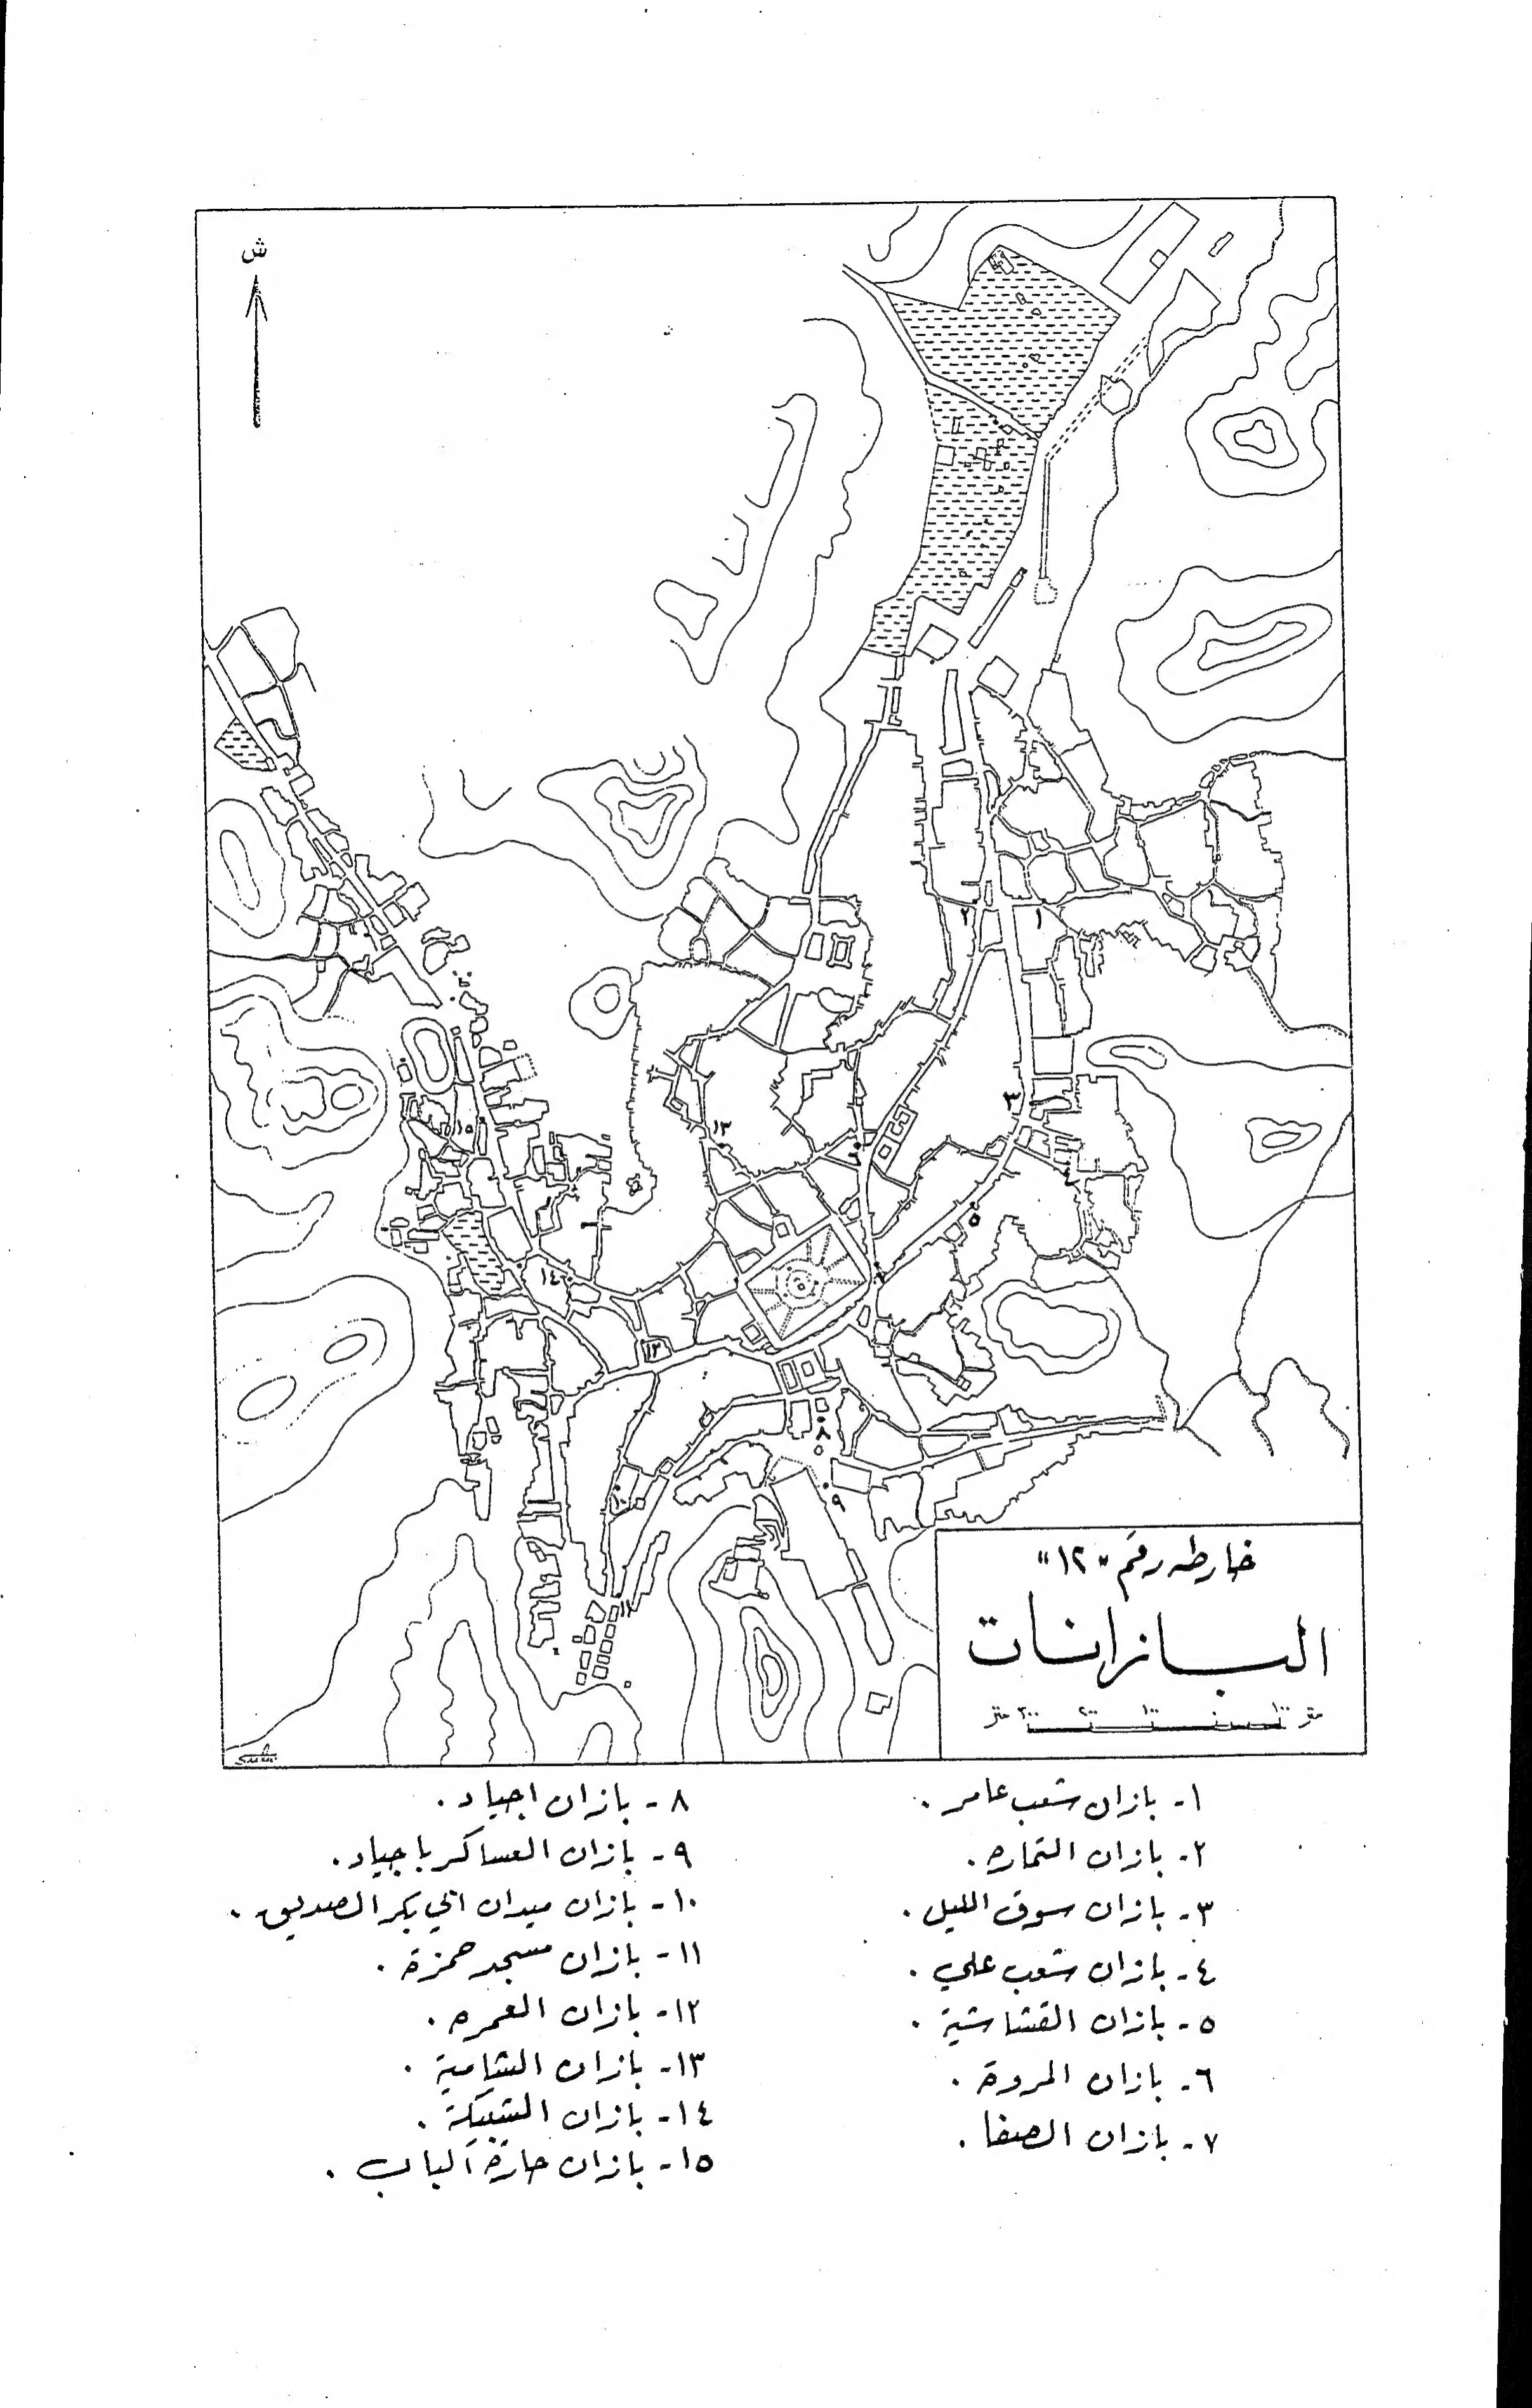 ش
١
٢
٣
٤
٥
٦
٧
٨
٩
١٠
١١
١٢
١٣
١٤
١٥
خارطه رقم "١٢"
البازانات
متر ١٠٠ ٠ ١٠٠ ٢٠٠ ٣٠٠ متر
١- بازان شعب عامر .
٢- بازان التماره .
٣- بازان سوق الليل .
٤- بازان شعب علي .
٥- بازان القشاشية .
٦- بازان المروة .
٧- بازان الصفا .
٨- بازان اجياد .
٩- بازان العساكر باجياد .
١٠- بازان ميدان ابي بكر الصديق .
١١- بازان مسجد حمزة .
١٢- بازان العمره .
١٣- بازان الشامية .
١٤- بازان الشبيكة .
١٥- بازان حارة الباب .